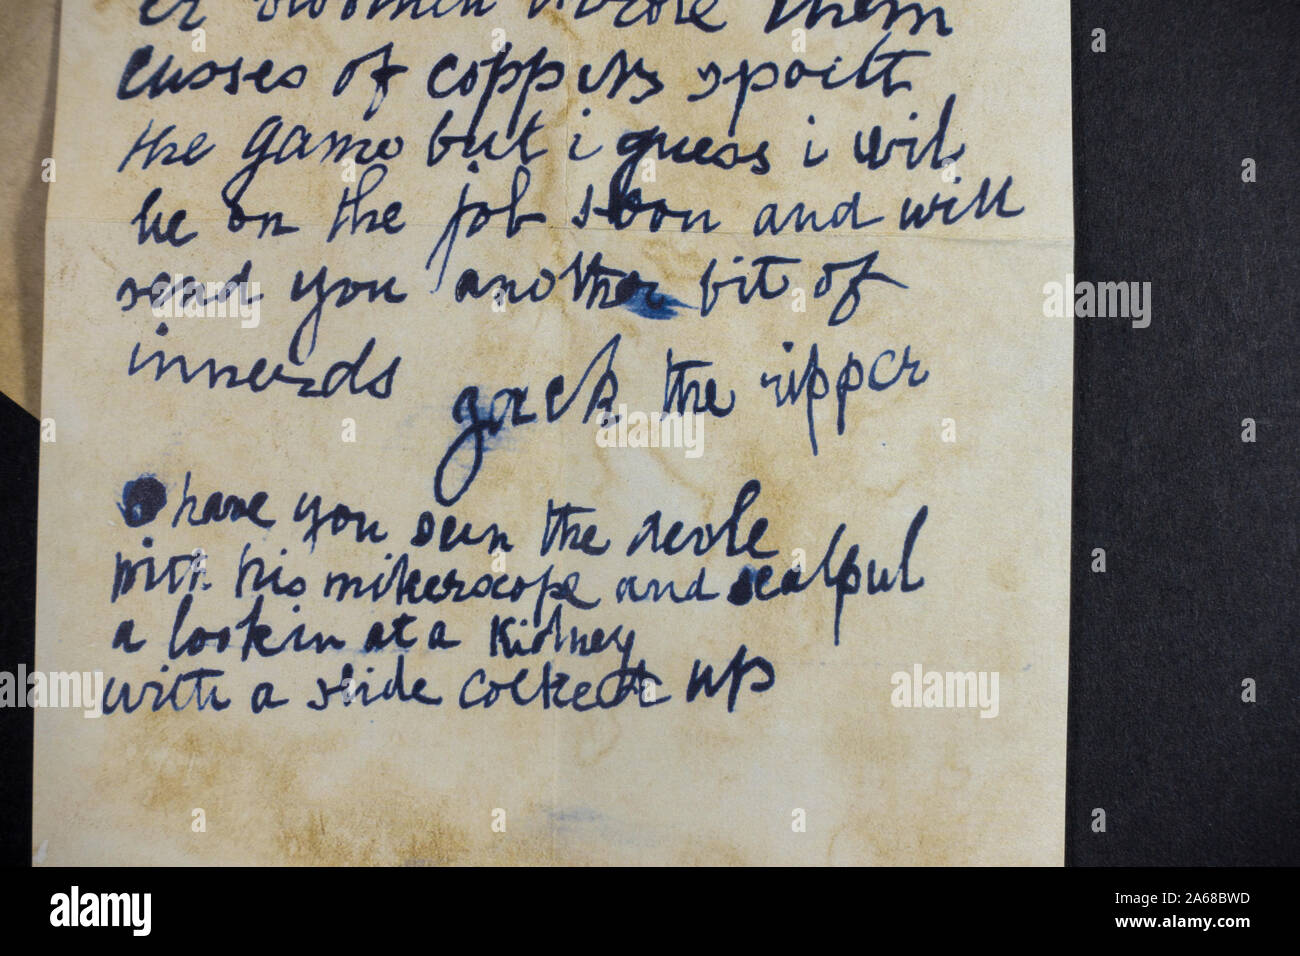 cusses of coppers spoilt
the game but i guess i wil
be on the job soon and will
send you another bit of
innerds
Jack the ripper
O have you seen the devle
with his mikerscope and scalpul
a lookin at a Kidney
with a slide cocked up
alamy
Image ID: 2A68BWD
www.alamy.com